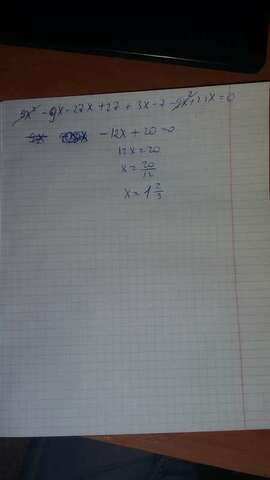 9x² - 9x - 27x + 27 + 3x - 7 - 9x² + 21x = 0
- 12x + 20 = 0
12x = 20
x = 20/12
x = 1 2/3